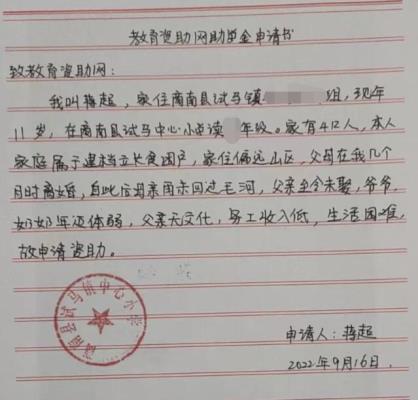 教育资助网助学金申请书
致教育资助网：
我叫蒋超，家住商南县试马镇 组，现年
11岁，在商南县试马中心小学读 年级。家有4口人，本人
家庭属于建档立长贫困户，家住偏远山区，父母在我几个
月时离婚，自此后母亲再未回过毛河，父亲至今未娶，爷爷，
奶奶年迈体弱，父亲无文化，务工收入低，生活困难，
故申请资助。
商南县试马镇中心小学
申请人：蒋超
2022年9月16日.